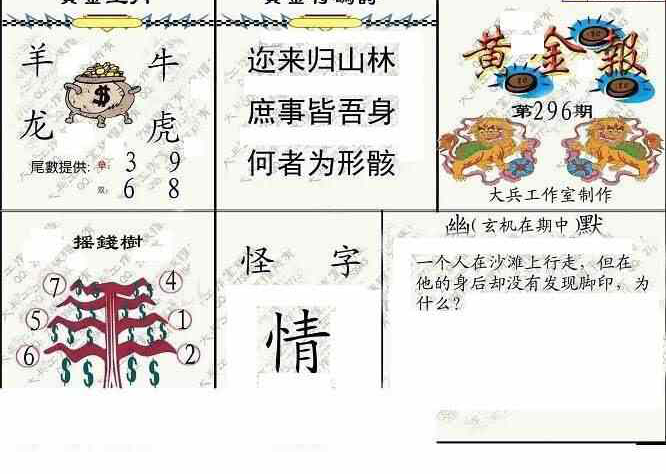 羊 牛
龙 虎
尾數提供: 单: 3 9
双: 6 8
迩来归山林
庶事皆吾身
何者为形骸
黄金報
第296期
大兵工作室制作
摇錢樹
7 4
5 1
6 2
怪 字
情
幽(玄机在期中)默
一个人在沙滩上行走，但在
他的身后却没有发现脚印，为
什么？